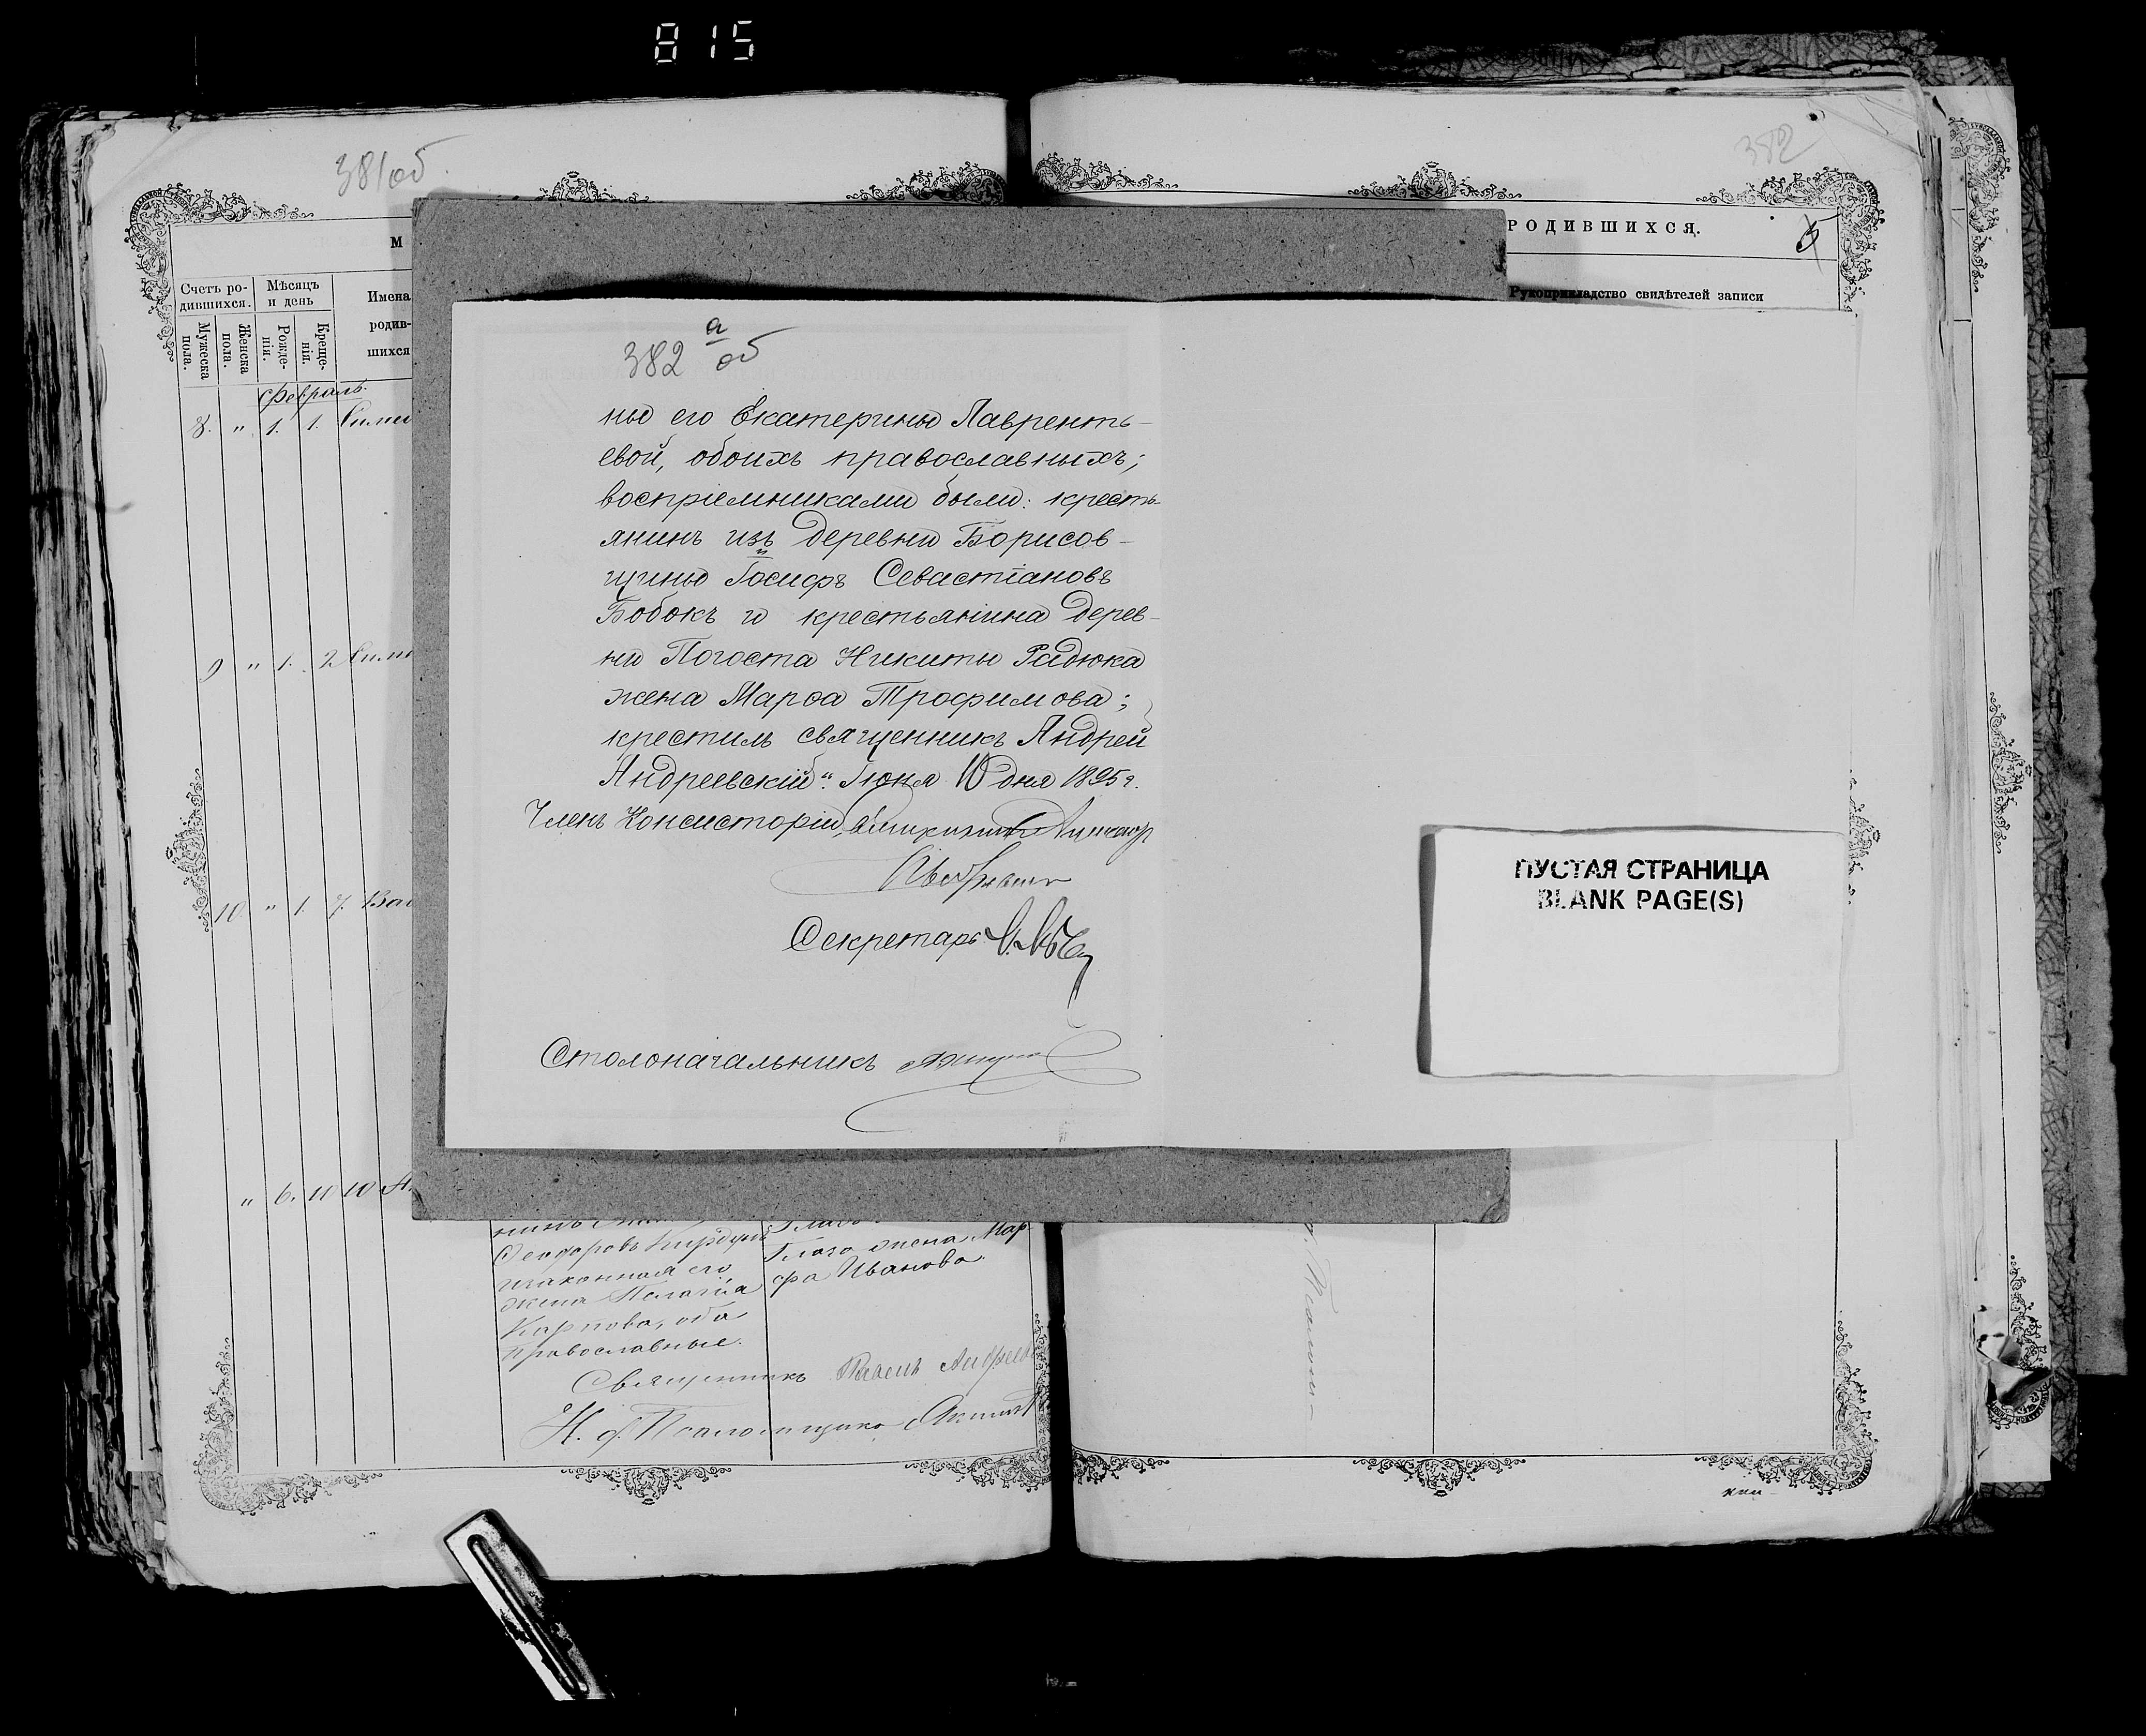 815
381об
382
М
РОДИВШИХСЯ.
5
Счетъ ро-
дившихся.
Мѣсяцъ
и день
Имена
родив-
шихся
Мужеска
пола.
Женска
пола.
Рожде-
нія.
Креще-
нія.
Рукоприкладство свидѣтелей записи
Февраль.
8. " 1. 1.
9 " 1. 2
10 " 1. 7.
" 6. 10 10
382 а об
ны его Екатерины Лаврентъ-
евой, обоихъ православныхъ;
воспріемниками были: кресть-
янинъ изъ деревни Борисов-
щины Іосифъ Севастіановъ
Бобокъ и крестьянина дерев-
ни Погоста Никиты Радюка
жена Марѳа Трофимова;
крестилъ священникъ Андрей
Андреевскій". Іюня 10 дня 1895 г.
Членъ Консисторіи,
Секретарь
Столоначальникъ
ПУСТАЯ СТРАНИЦА
BLANK PAGE(S)
Ѳеодоровъ
и законная его
жена Пелагія
Карпова, оба
православные.
жена Мар-
фа Иванова.
Священникъ
Н. д. Псаломщика